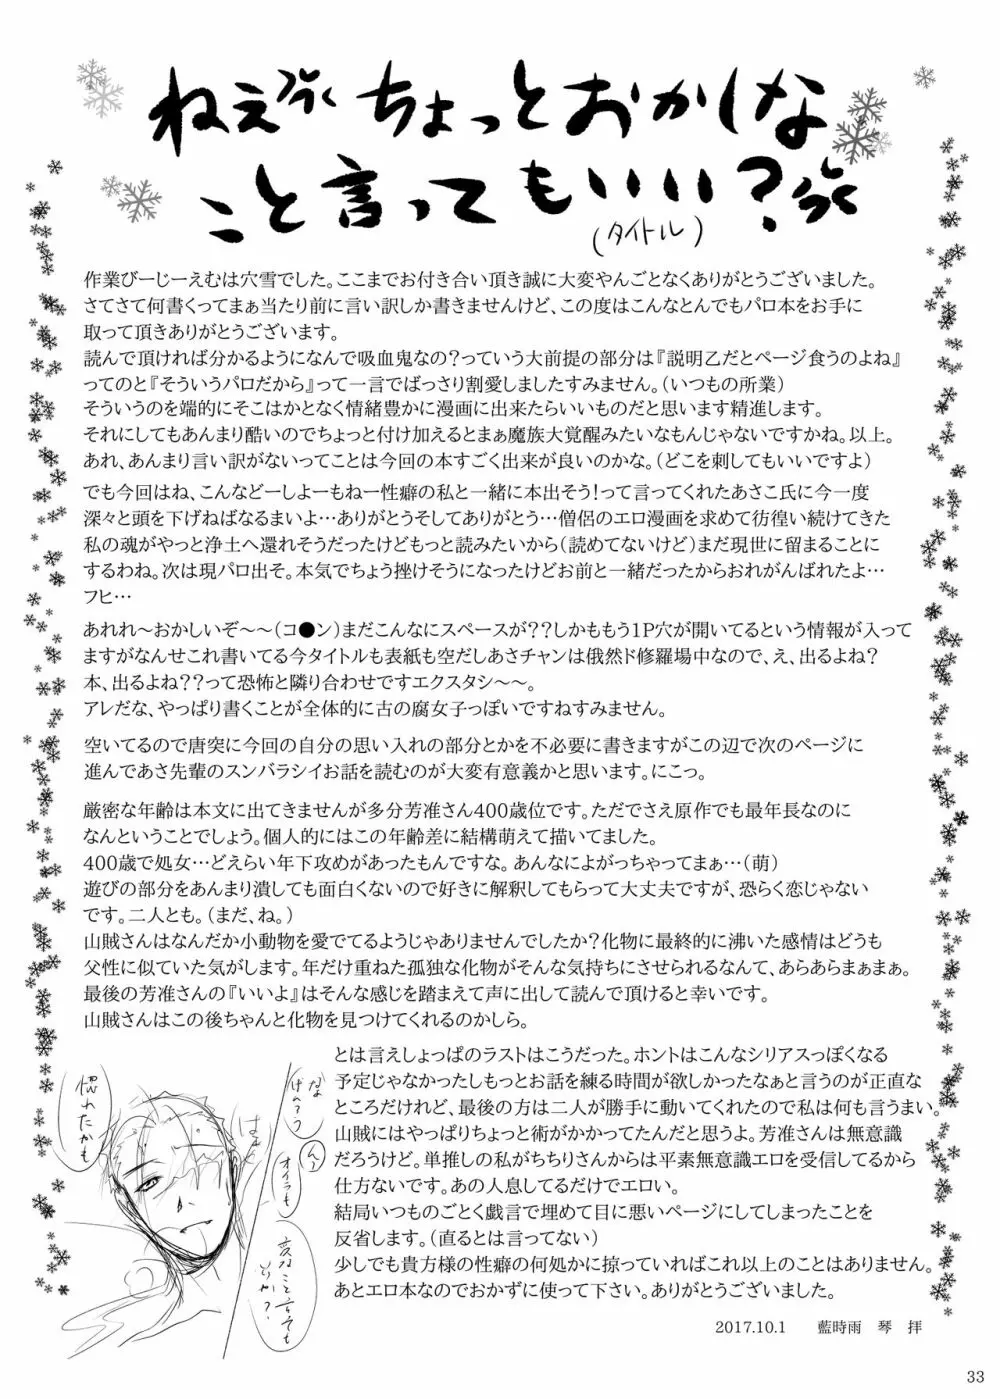 ねえ ちょっとおかしな
こと言ってもいい？
（タイトル）
作業びーじーえむは穴雪でした。ここまでお付き合い頂き誠に大変やんごとなくありがとうございました。
さてさて何書くってまぁ当たり前に言い訳しか書きませんけど、この度はこんなとんでもパロ本をお手に
取って頂きありがとうございます。
読んで頂ければ分かるようになんで吸血鬼なの？っていう大前提の部分は『説明乙だとページ食うのよね』
ってのと『そういうパロだから』って一言でばっさり割愛しましたすみません。（いつもの所業）
そういうのを端的にそこはかとなく情緒豊かに漫画に出来たらいいものだと思います精進します。
それにしてもあんまり酷いのでちょっと付け加えるとまぁ魔族大覚醒みたいなもんじゃないですかね。以上。
あれ、あんまり言い訳がないってことは今回の本すごく出来が良いのかな。（どこを刺してもいいですよ）
でも今回はね、こんなどーしよーもねー性癖の私と一緒に本出そう！って言ってくれたあさこ氏に今一度
深々と頭を下げねばなるまいよ…ありがとうそしてありがとう…僧侶のエロ漫画を求めて彷徨い続けてきた
私の魂がやっと浄土へ還れそうだったけどもっと読みたいから（読めてないけど）まだ現世に留まることに
するわね。次は現パロ出そ。本気でちょう挫けそうになったけどお前と一緒だったからおれがんばれたよ…
フヒ…
あれれ～おかしいぞ～～（コ●ン）まだこんなにスペースが？？しかももう1P穴が開いてるという情報が入って
ますがなんせこれ書いてる今タイトルも表紙も空だしあさチャンは俄然ド修羅場中なので、え、出るよね？
本、出るよね？？って恐怖と隣り合わせですエクスタシ～～。
アレだな、やっぱり書くことが全体的に古の腐女子っぽいですねすみません。
空いてるので唐突に今回の自分の思い入れの部分とかを不必要に書きますがこの辺で次のページに
進んであさ先輩のスンバラシイお話を読むのが大変有意義かと思います。にこっ。
厳密な年齢は本文に出てきませんが多分芳准さん400歳位です。ただでさえ原作でも最年長なのに
なんということでしょう。個人的にはこの年齢差に結構萌えて描いてました。
400歳で処女…どえらい年下攻めがあったもんですな。あんなによがっちゃってまぁ…（萌）
遊びの部分をあんまり潰しても面白くないので好きに解釈してもらって大丈夫ですが、恐らく恋じゃない
です。二人とも。（まだ、ね。）
山賊さんはなんだか小動物を愛でてるようじゃありませんでしたか？化物に最終的に沸いた感情はどうも
父性に似ていた気がします。年だけ重ねた孤独な化物がそんな気持ちにさせられるなんて、あらあらまぁまぁ。
最後の芳准さんの『いいよ』はそんな感じを踏まえて声に出して読んで頂けると幸いです。
山賊さんはこの後ちゃんと化物を見つけてくれるのかしら。
とは言えしょっぱのラストはこうだった。ホントはこんなシリアスっぽくなる
予定じゃなかったしもっとお話を練る時間が欲しかったなぁと言うのが正直な
ところだけれど、最後の方は二人が勝手に動いてくれたので私は何も言うまい。
山賊にはやっぱりちょっと術がかかってたんだと思うよ。芳准さんは無意識
だろうけど。単推しの私がちちりさんからは平素無意識エロを受信してるから
仕方ないです。あの人息してるだけでエロい。
結局いつものごとく戯言で埋めて目に悪いページにしてしまったことを
反省します。（直るとは言ってない）
少しでも貴方様の性癖の何処かに掠っていればこれ以上のことはありません。
あとエロ本なのでおかずに使って下さい。ありがとうございました。
2017.10.1　藍時雨　琴　拝
惚れたかも
オイラも
変なこと言うても
33